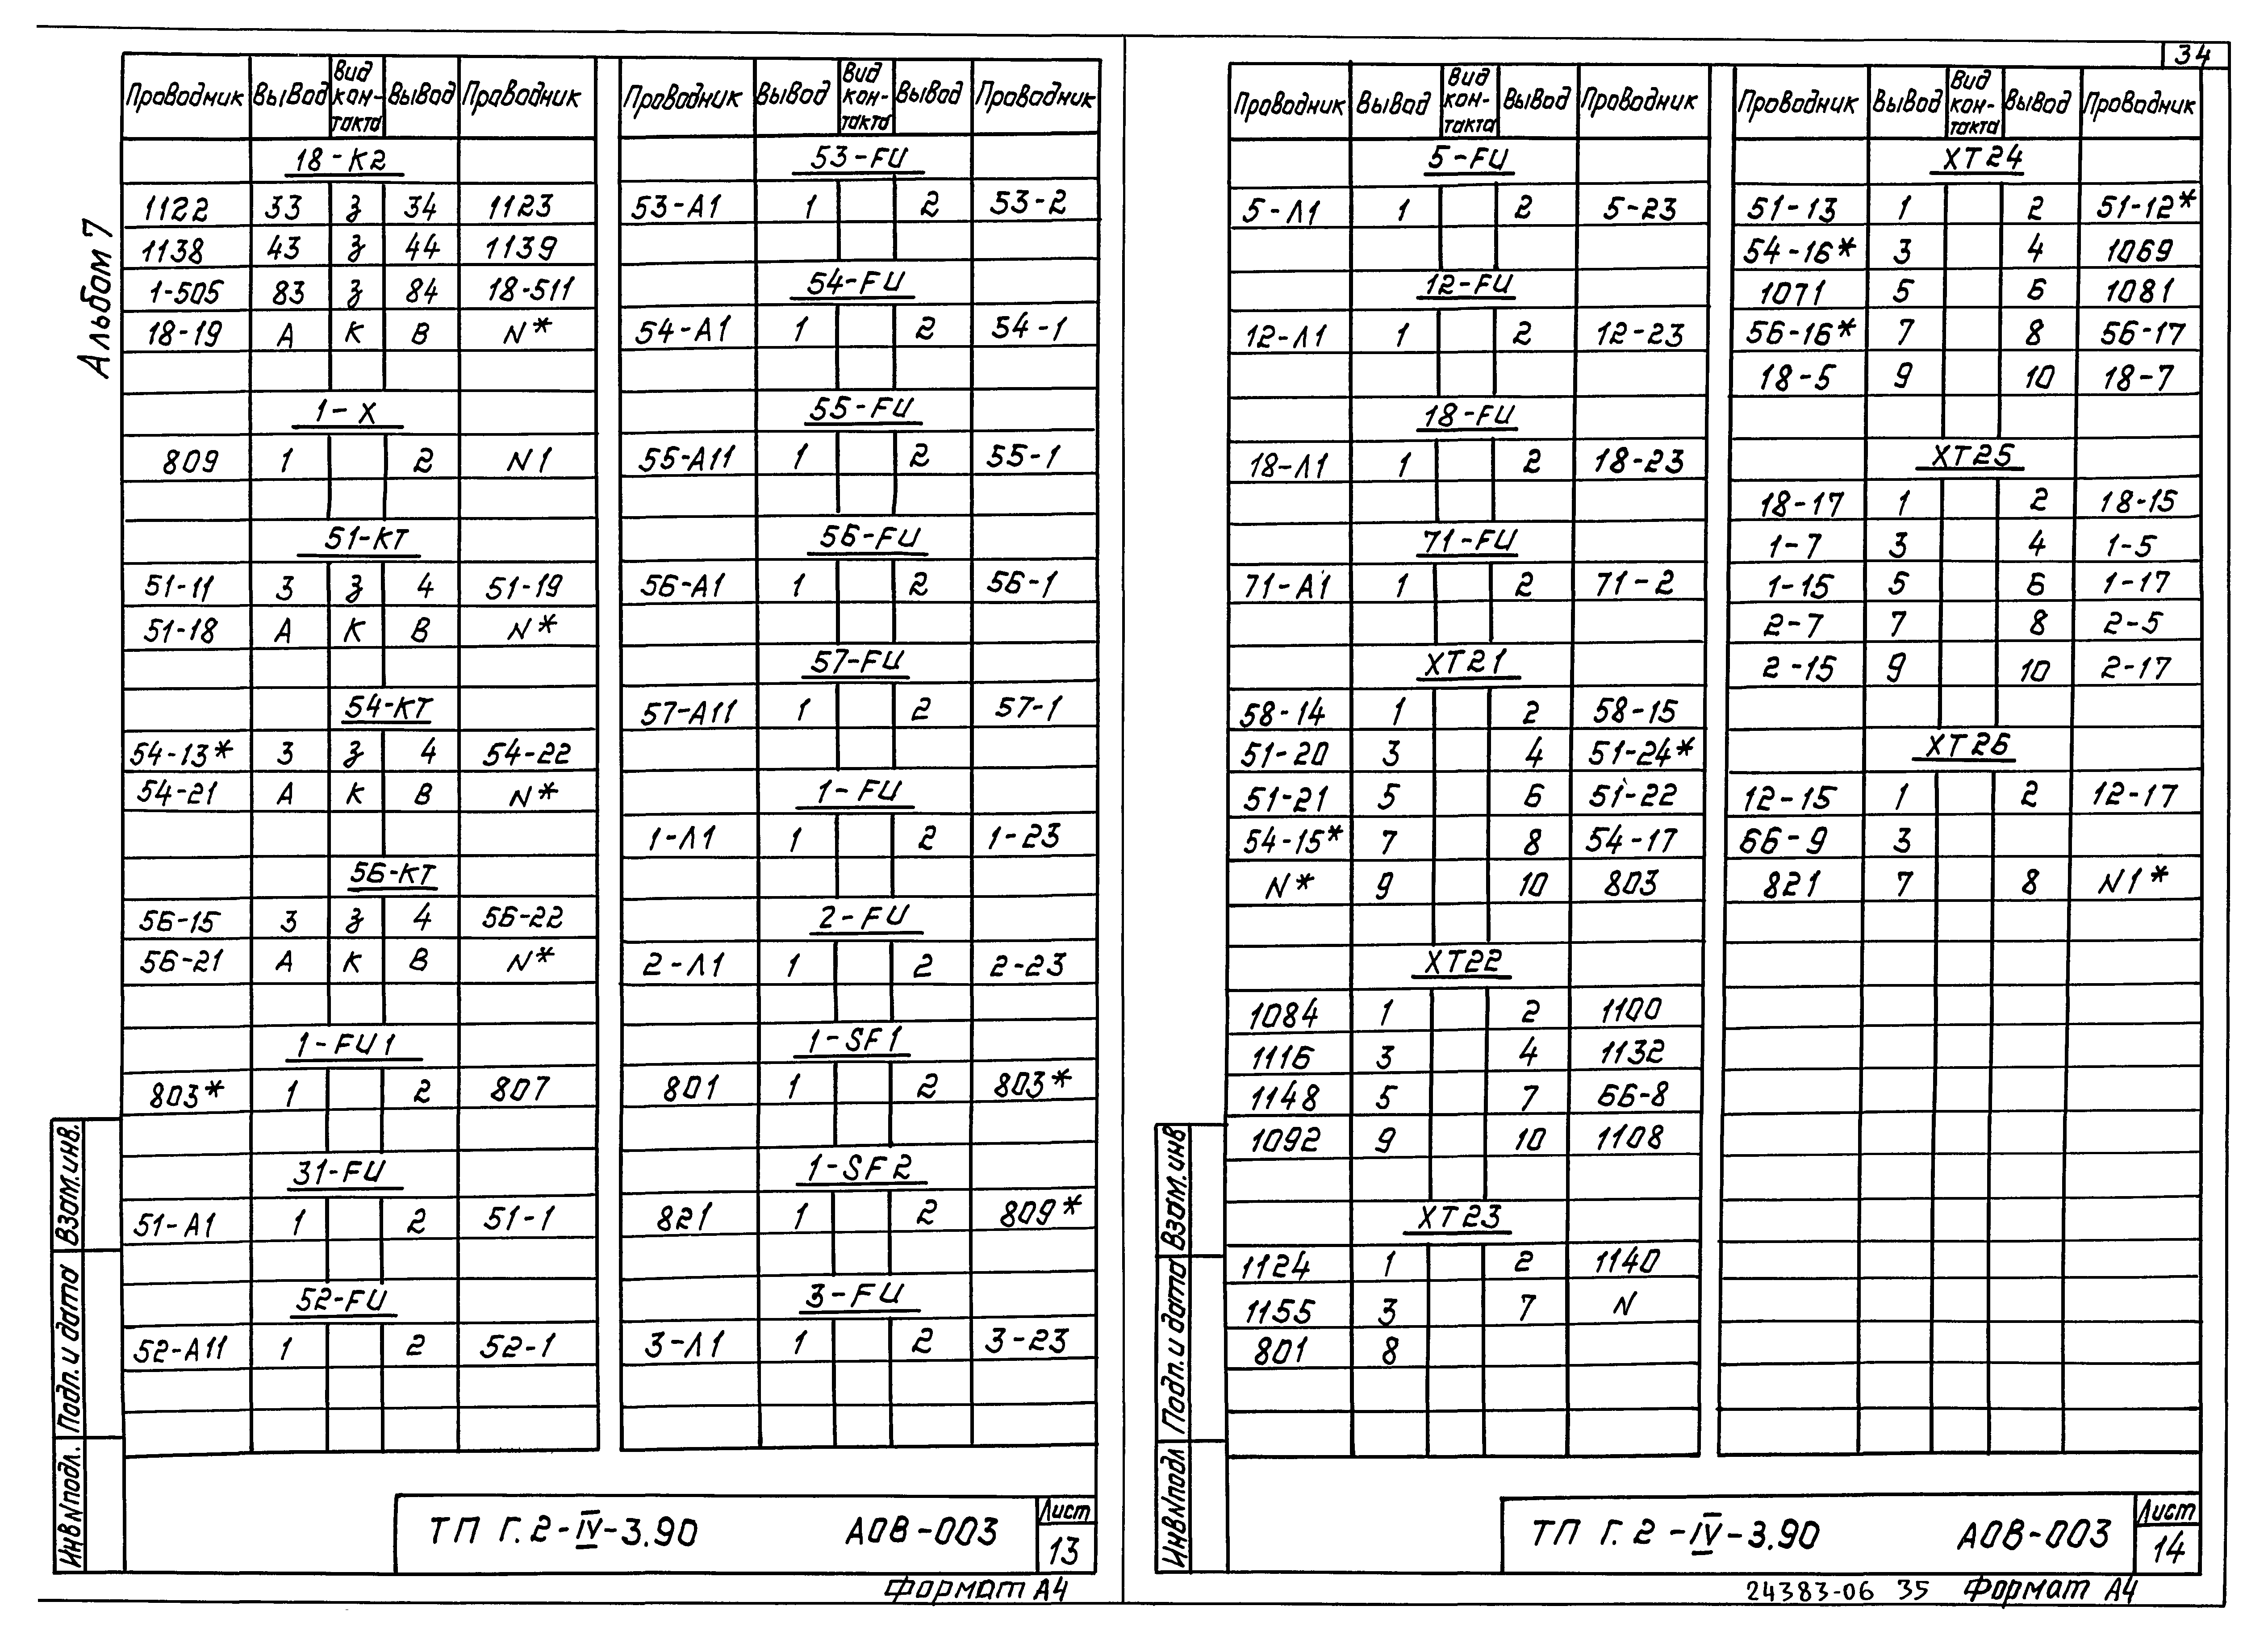 Альбом 7
Проводник Вывод Вид кон-такта Вывод Проводник
18-К2
1122 33 з 34 1123
1138 43 з 44 1139
1-505 83 з 84 18-511
18-19 А К В N*
1-Х
809 1 2 N1
51-КТ
51-11 3 з 4 51-19
51-18 А К В N*
54-КТ
54-13* 3 з 4 54-22
54-21 А К В N*
56-КТ
56-15 3 з 4 56-22
56-21 А К В N*
1-FU1
803* 1 2 807
31-FU
51-А1 1 2 51-1
52-FU
52-А11 1 2 52-1
Проводник Вывод Вид кон-такта Вывод Проводник
53-FU
53-А1 1 2 53-2
54-FU
54-А1 1 2 54-1
55-FU
55-А11 1 2 55-1
56-FU
56-А1 1 2 56-1
57-FU
57-А11 1 2 57-1
1-FU
1-Л1 1 2 1-23
2-FU
2-Л1 1 2 2-23
1-SF1
801 1 2 803*
1-SF2
821 1 2 809*
3-FU
3-Л1 1 2 3-23
Инв N подл. Подп. и дата Взам. инв.
ТП Г.2-IV-3.90 АОВ-003 Лист 13
Формат А4
34
Проводник Вывод Вид кон-такта Вывод Проводник
5-FU
5-Л1 1 2 5-23
12-FU
12-Л1 1 2 12-23
18-FU
18-Л1 1 2 18-23
71-FU
71-А1 1 2 71-2
ХТ21
58-14 1 2 58-15
51-20 3 4 51-24*
51-21 5 6 51-22
54-15* 7 8 54-17
N* 9 10 803
ХТ22
1084 1 2 1100
1116 3 4 1132
1148 5 7 66-8
1092 9 10 1108
ХТ23
1124 1 2 1140
1155 3 7 N
801 8
Проводник Вывод Вид кон-такта Вывод Проводник
ХТ24
51-13 1 2 51-12*
54-16* 3 4 1069
1071 5 6 1081
56-16* 7 8 56-17
18-5 9 10 18-7
ХТ25
18-17 1 2 18-15
1-7 3 4 1-5
1-15 5 6 1-17
2-7 7 8 2-5
2-15 9 10 2-17
ХТ26
12-15 1 2 12-17
66-9 3
821 7 8 N1*
Инв N подл Подп. и дата Взам. инв
ТП Г.2-IV-3.90 АОВ-003 Лист 14
24383-06 35 Формат А4